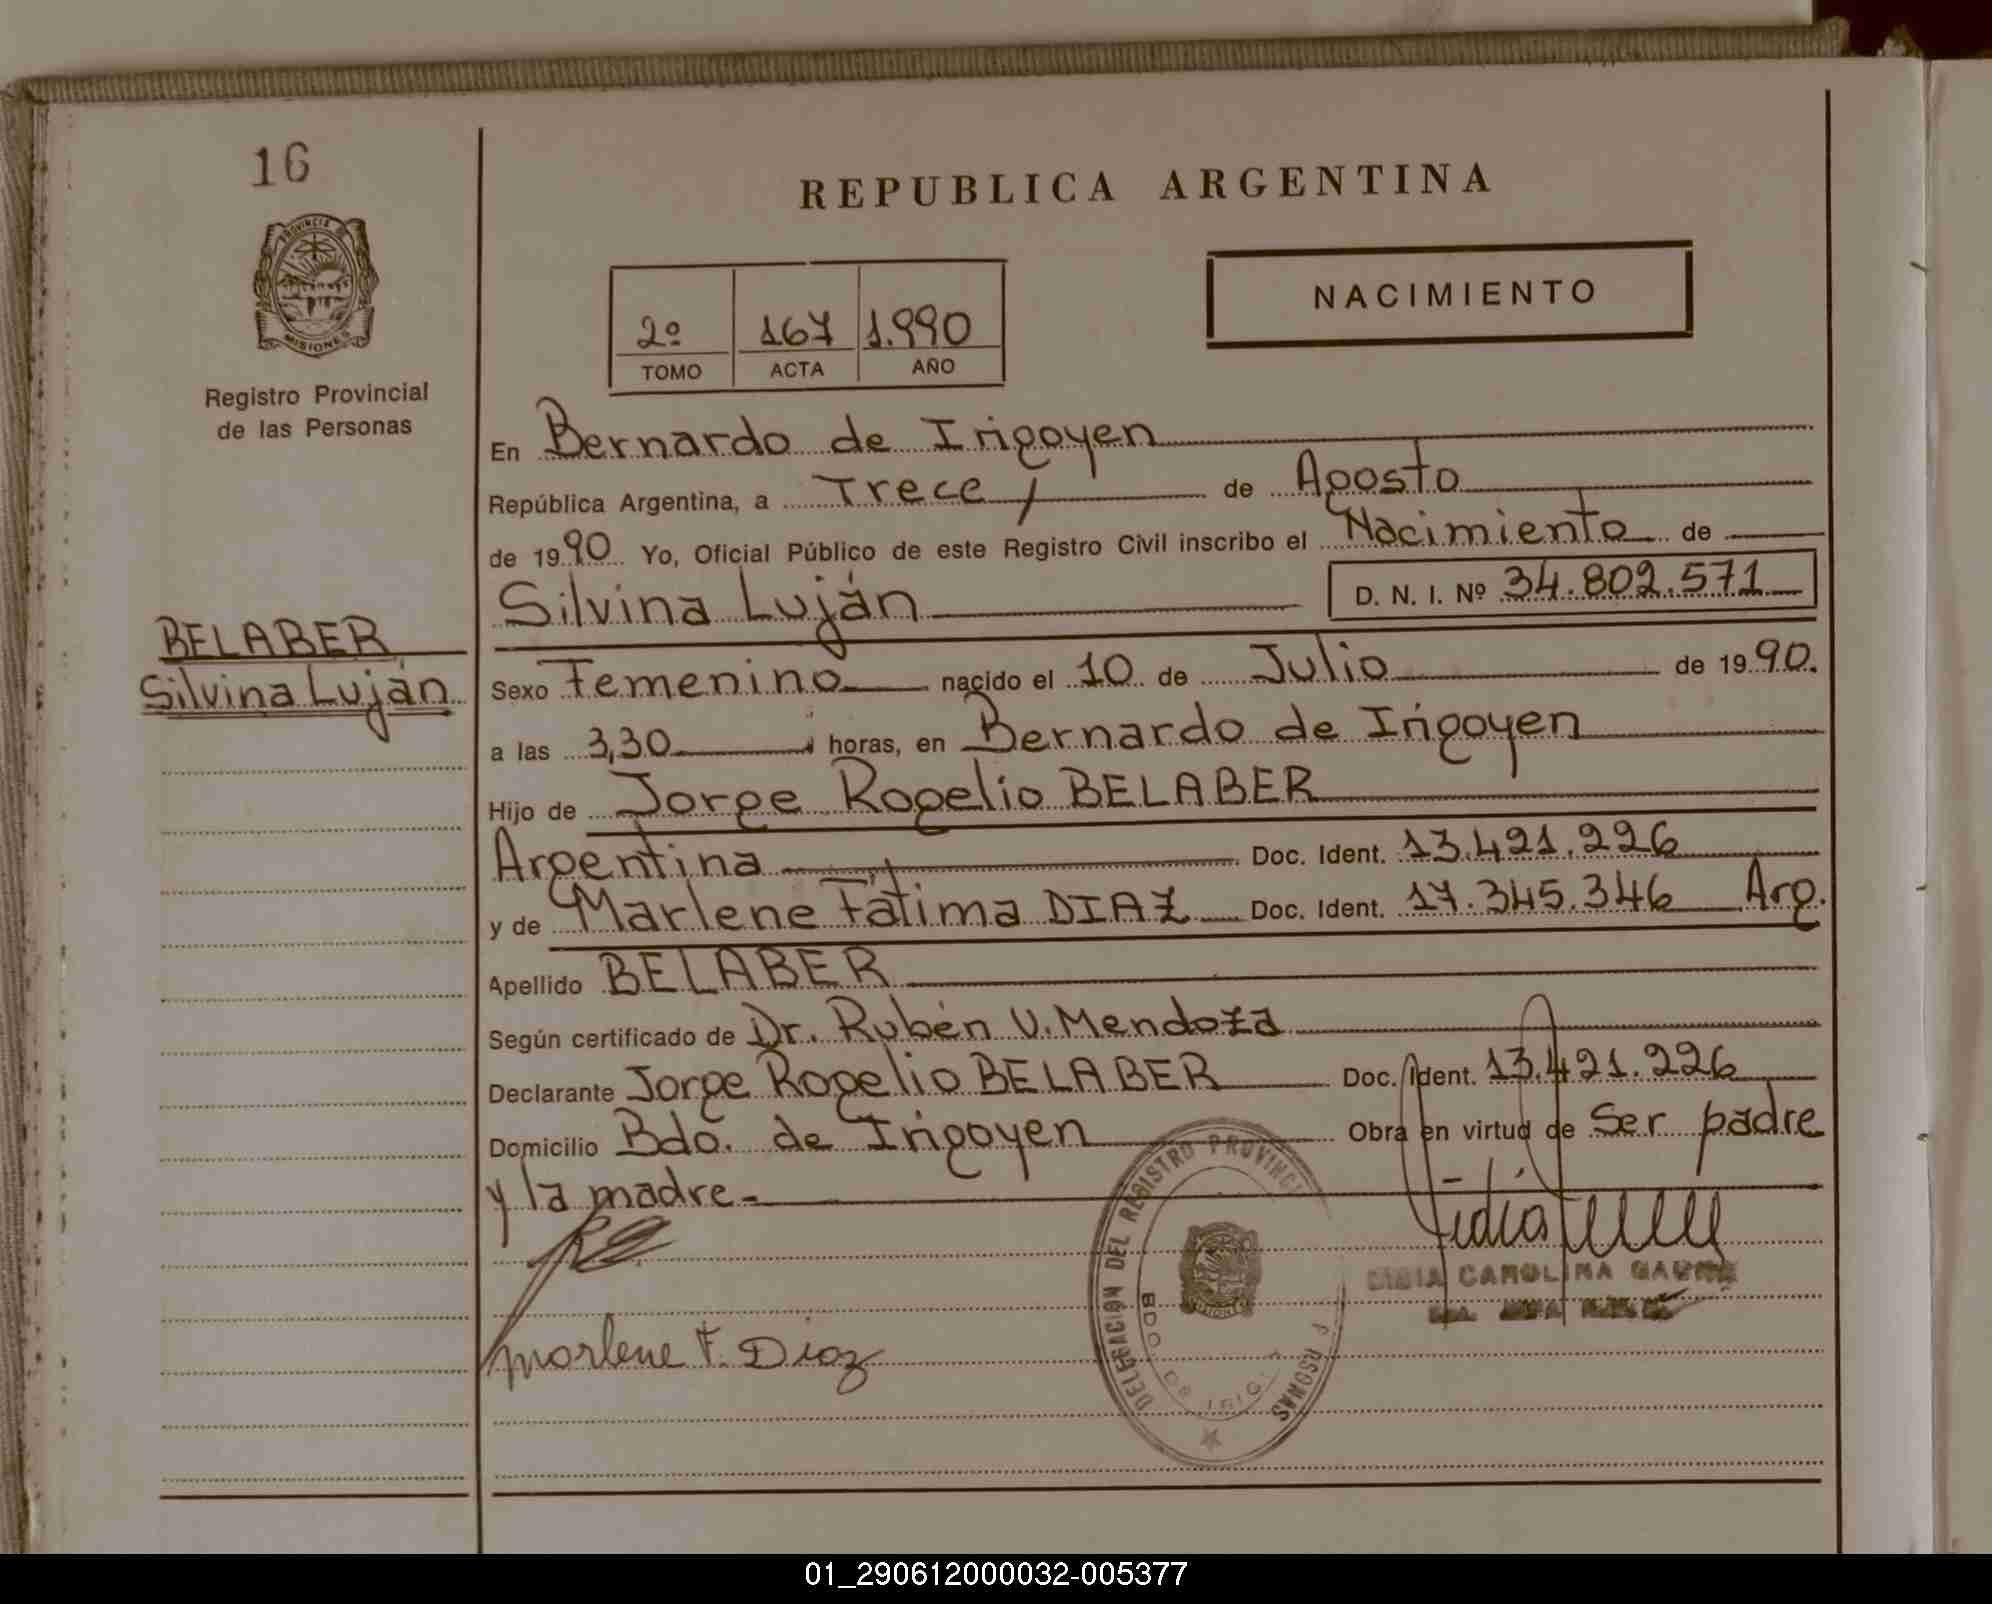 16
PROVINCIA DE
MISIONES
Registro Provincial
de las Personas
BELABER
Silvina Luján
REPUBLICA ARGENTINA
2º 167 1.990
TOMO ACTA AÑO
NACIMIENTO
En Bernardo de Irigoyen
República Argentina, a Trece de Agosto
de 1990 Yo, Oficial Público de este Registro Civil inscribo el Nacimiento de
Silvina Luján D. N. I. Nº 34.802.571
Sexo Femenino nacido el 10 de Julio de 1990.
a las 3,30 horas, en Bernardo de Irigoyen
Hijo de Jorge Rogelio BELABER
Argentina Doc. Ident. 13.421.226
y de Marlene Fátima DIAZ Doc. Ident. 17.345.346 Arg.
Apellido BELABER
Según certificado de Dr. Rubén V. Mendoza
Declarante Jorge Rogelio BELABER Doc. Ident. 13.421.226
Domicilio Bdo. de Irigoyen Obra en virtud de Ser padre
y la madre.-
marlene F. Diaz
DELEGACIÓN DEL REGISTRO PROVINCI
BDO DE
CAROLINA
01_290612000032-005377